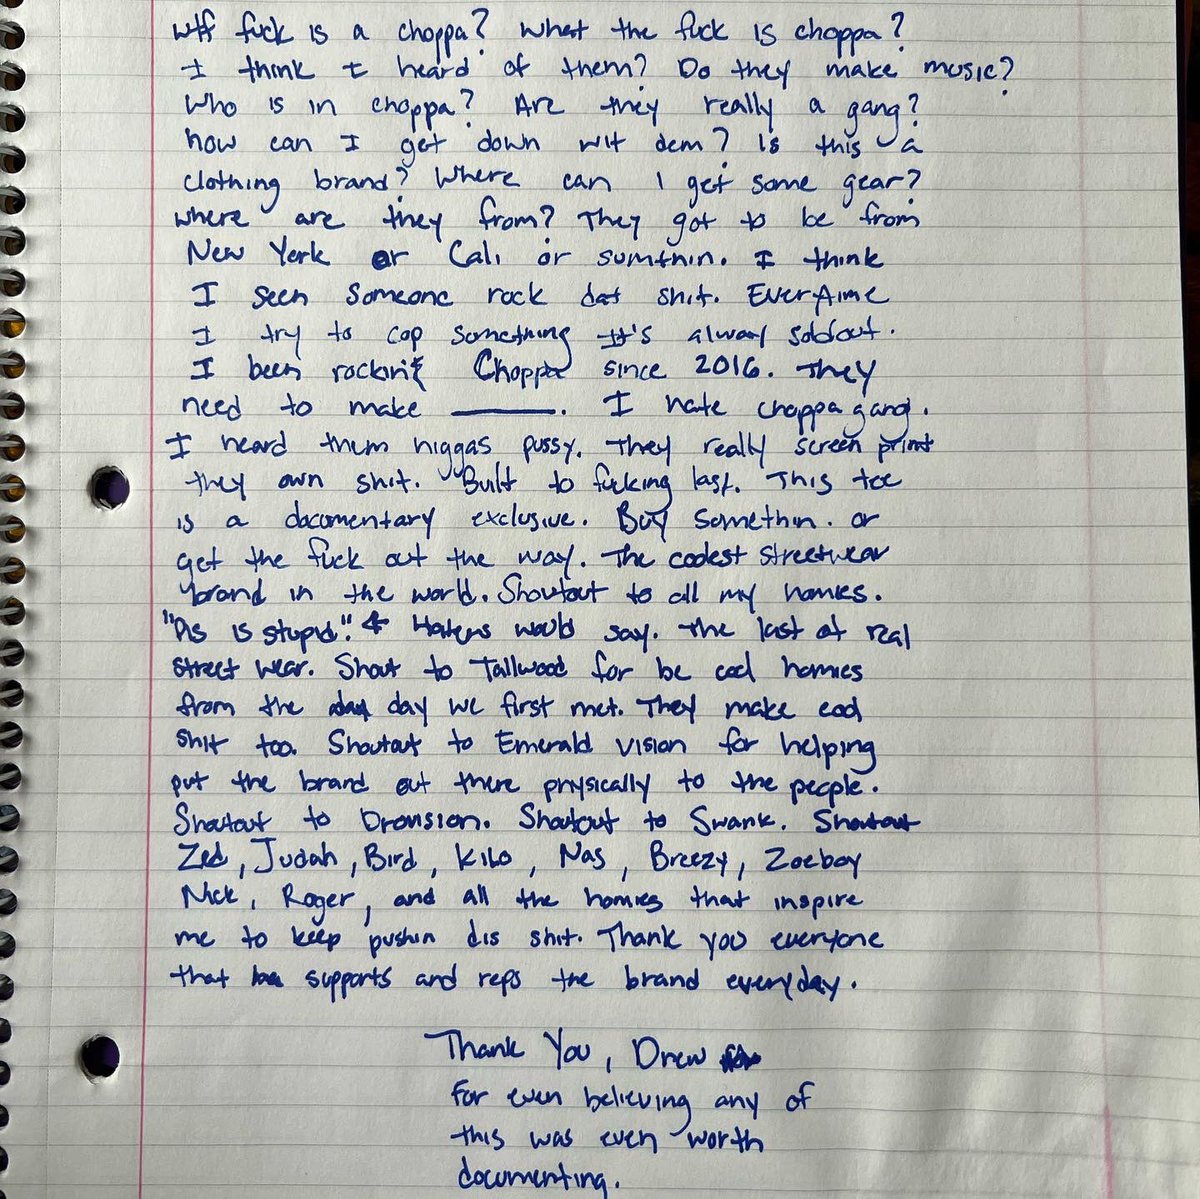 wtf fuck is a choppa? What the fuck is choppa?
I think I heard of them? Do they make music?
Who is in choppa? Are they really a gang?
how can I get down wit dem? Is this a
clothing brand? Where can I get some gear?
where are they from? They got to be from
New York or Cali or sumthin. I think
I seen someone rock dat shit. Everytime
I try to cop something It's alway soldout.
I been rockin Choppa since 2016. They
need to make ______. I hate choppa gang.
I heard them niggas pussy. They really screen print
they own shit. Built to fucking last. This tee
is a documentary exclusive. Buy somethin. or
get the fuck out the way. The coolest streetwear
brand in the world. Shoutout to all my homies.
"Dis is stupid". ← Haters would say. The last of real
street wear. Shout to Tallwood for be cool homies
from the day we first met. They make cool
shit too. Shoutout to Emerald Vision for helping
put the brand out there physically to the people.
Shoutout to Drovision. Shoutout to Swank. Shoutout
Zed, Judah, Bird, Kilo, Nas, Breezy, Zoeboy
Nick, Roger, and all the homies that inspire
me to keep pushin dis shit. Thank you everyone
that supports and reps the brand everyday.
Thank You, Drew
for even believing any of
this was even worth
documenting.